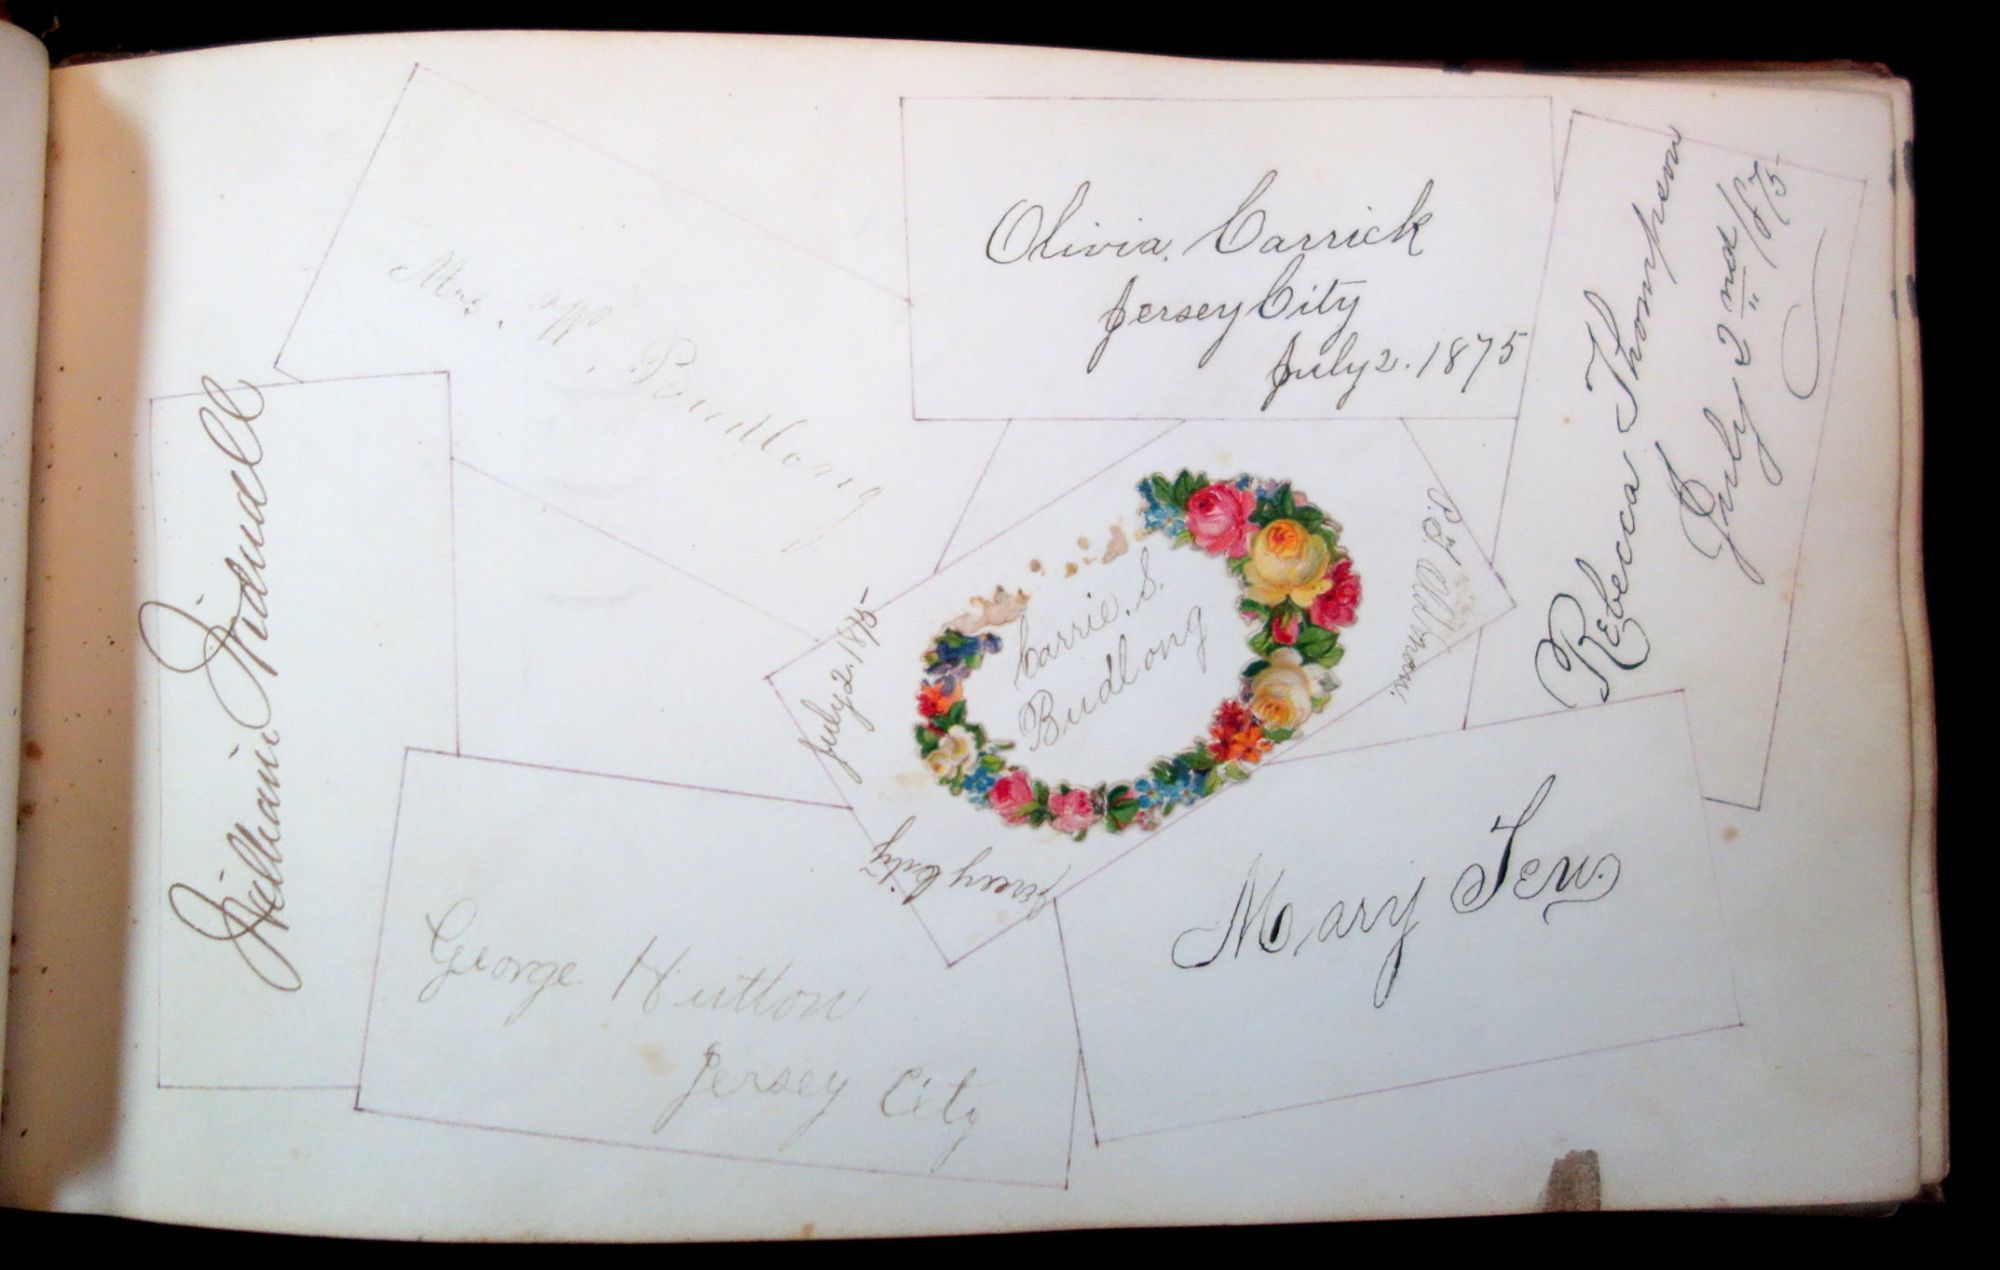 Olivia. Carrick
Jersey City
July 2. 1875
Rebecca Thompson
July 2nd/875
Mrs. Budlong
William Tidnall
July 2. 1875
Carrie. S.
Budlong
Jersey City
George Hutton
Jersey City
Mary